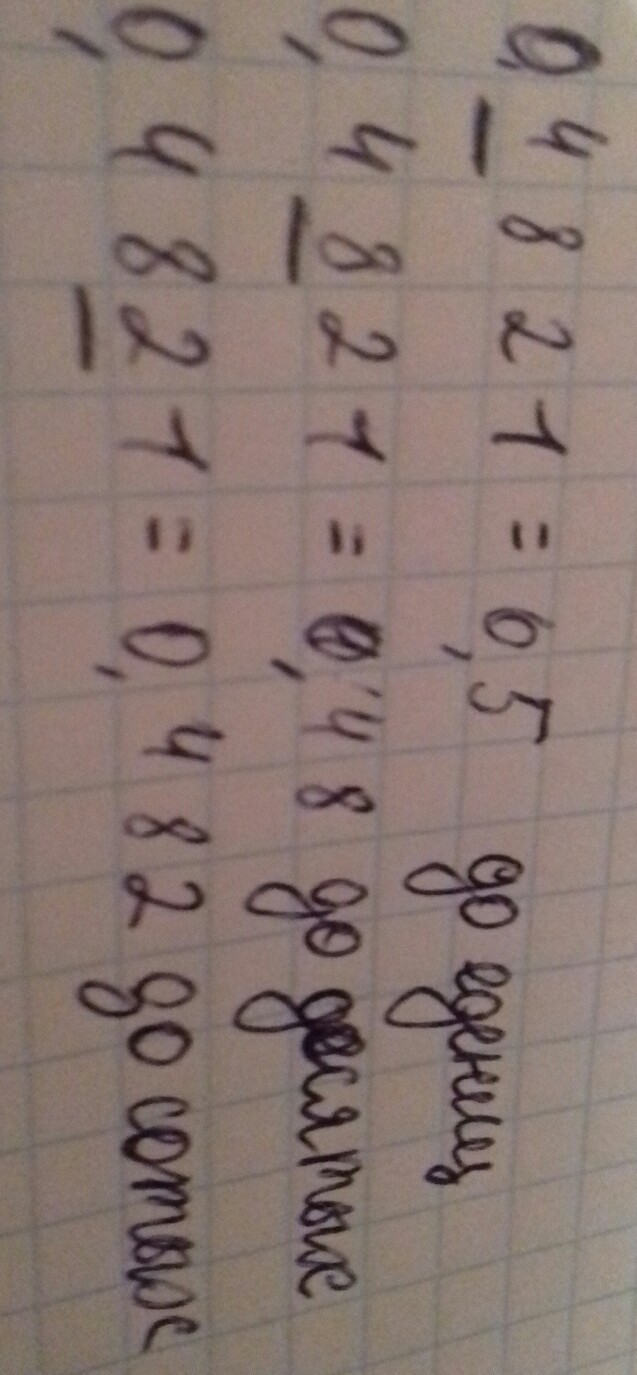 0,4821 = 0,5 до едениц
0,4821 = 0,48 до десятых
0,4821 = 0,482 до сотых